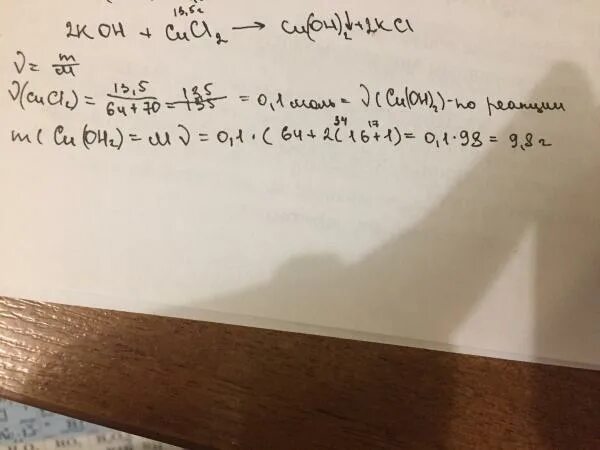 13,5г
2KOH + CuCl₂ → Cu(OH)₂↓ + 2KCl
ν = m/M
ν(CuCl₂) = 13,5/64+70 = 13,5/135 = 0,1 моль = ν(Cu(OH)₂) - по реакции
34 17
m(Cu(OH₂) = M ν = 0,1 · (64 + 2(16+1) = 0,1 · 98 = 9,8г